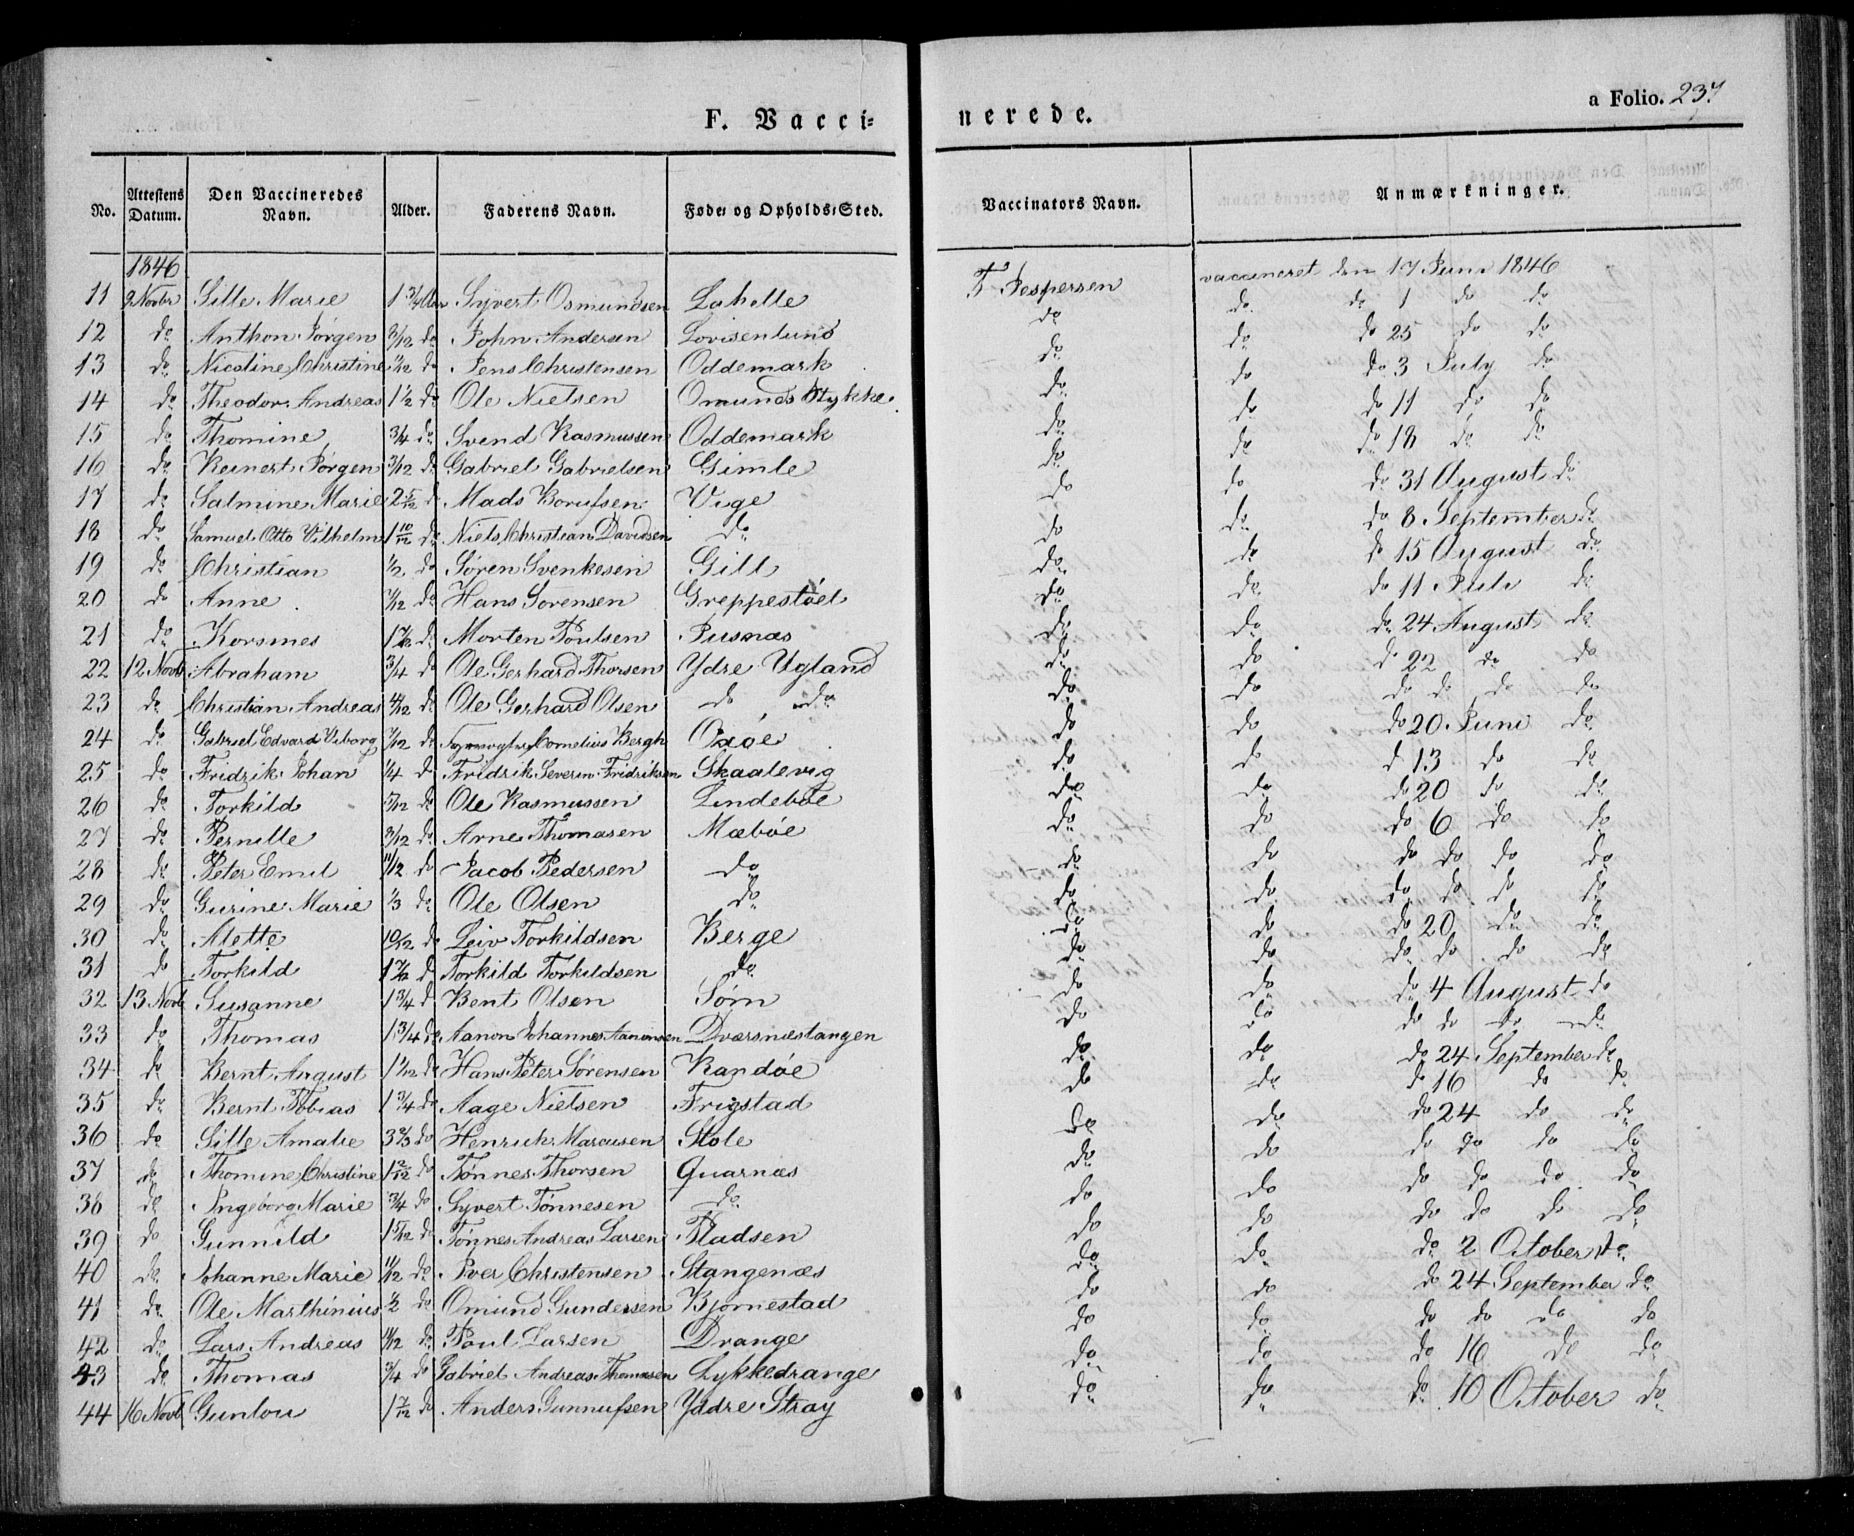 a Folio. 237
F. Vacci- nerede.
No. Attestens Datum. Den Vaccineredes Navn. Alder. Faderens Navn. Føde- og Opholds-Sted. Vaccinators Navn. Anmærkninger.
1846
11 9 Novbr Sille Marie 1 3/4 Aar Syvert Osmundsen Lahelle T Jespersen vaccineret den 17 Juni 1846
12 do Anthon Jørgen 3/12 do John Andersen Lovisenlund do do do 1 do do
13 do Nicoline Christine 1/12 do Jens Christensen Oddemark do do do 25 do do
14 do Theodor Andreas 1 1/2 do Ole Nielsen Omunds Stykke do do do 3 July do
15 do Thomine 3/4 do Svend Rasmussen Oddemark do do do 11 do do
16 do Reinert Jørgen 3/12 do Gabriel Gabrielsen Gimle do do do 18 do do
17 do Salmine Marie 2 5/12 d Mads Borufsen Vige do do do 31 August do
18 do Samuel Otto Vilhelm 1 10/12 do Niels Christian Davidsen do do do do 8 September do
19 do Christian 1/2 do Søren Svenkesen Gill do do do 15 August do
20 do Anne 7/12 do Hans Sørensen Greppestøel do do do 11 Juli do
21 do Korsmes do Morten Poulsen Pusnæs do do do 24 August do
22 12 Novb Abraham 3/4 do Ole Gerhard Thorsen Ydre Ugland do do d 22 do do
23 do Christian Andreas 4/12 do Ole Gerhard Olsen do do do do do do do do
24 do Gabriel Edvard Viborg 7/12 do Cornelius Bergh Oxøe do do do 20 Juni do
25 do Fridrik Johan 1/4 d Fridrik Severin Fridriksen Skaalevig do do d 13 do do
26 do Torkild 5/12 do Ole Rasmussen Lindebøe do do do 20 do do
27 do Pernille 3/12 do Arne Thomasen Mæbøe do do do 6 do do
28 do Peter Emil 11/12 do Jacob Pedersen do do do do do do do
29 do Gurine Marie 1/3 do Ole Olsen do do do do do do do
30 do Alette 10/12 do Leiv Torkildsen Berge do do do 20 do do
31 do Torkild do Torkild Torkildsen do do do do do do do
32 13 Novb Susanne 1 3/4 d Bent Olsen Sóm do do do 4 August do
33 do Thomas 1 3/4 do Aanon Johannes Aanonsen Dværsnæstangen do do do do do do
34 do Bernt August 1 1/12 do Hans Peter Sørensen Randøe do do do 24 September do
35 do Bernt Tobias 1 3/4 do Aage Nielsen Frigstad do do do 16 do do
36 do Sille Amalie 3 2/3 do Henrich Marcusen Stole do do do 24 do do
37 do Thomine Christine 1 2/12 do Tønnes Thorsen Quarnæs do do do do do do
38 do Ingeborg Marie 3/4 do Syvert Tønnesen do do do do do do do
39 do Gunnild 1 5/12 do Tønnes Andreas Larsen Pladsen do do do do do do
40 do Johanne Marie 11/12 do Iver Christensen Stangenæs do do do 2 Ottober do
41 do Ole Marthinius 1/2 do Omund Gundersen Bjørnestad do do do 24 September do
42 do Lars Andreas 11/12 do Poul Larsen Drange do do do do do do
43 do Thomas 3/4 do Gabriel Andreas Thomasen Lykkedrange do do do 16 do do
44 16 Novb Gunlou 1 7/12 do Anders Gunnufsen Yddre Stray do do do 10 October do